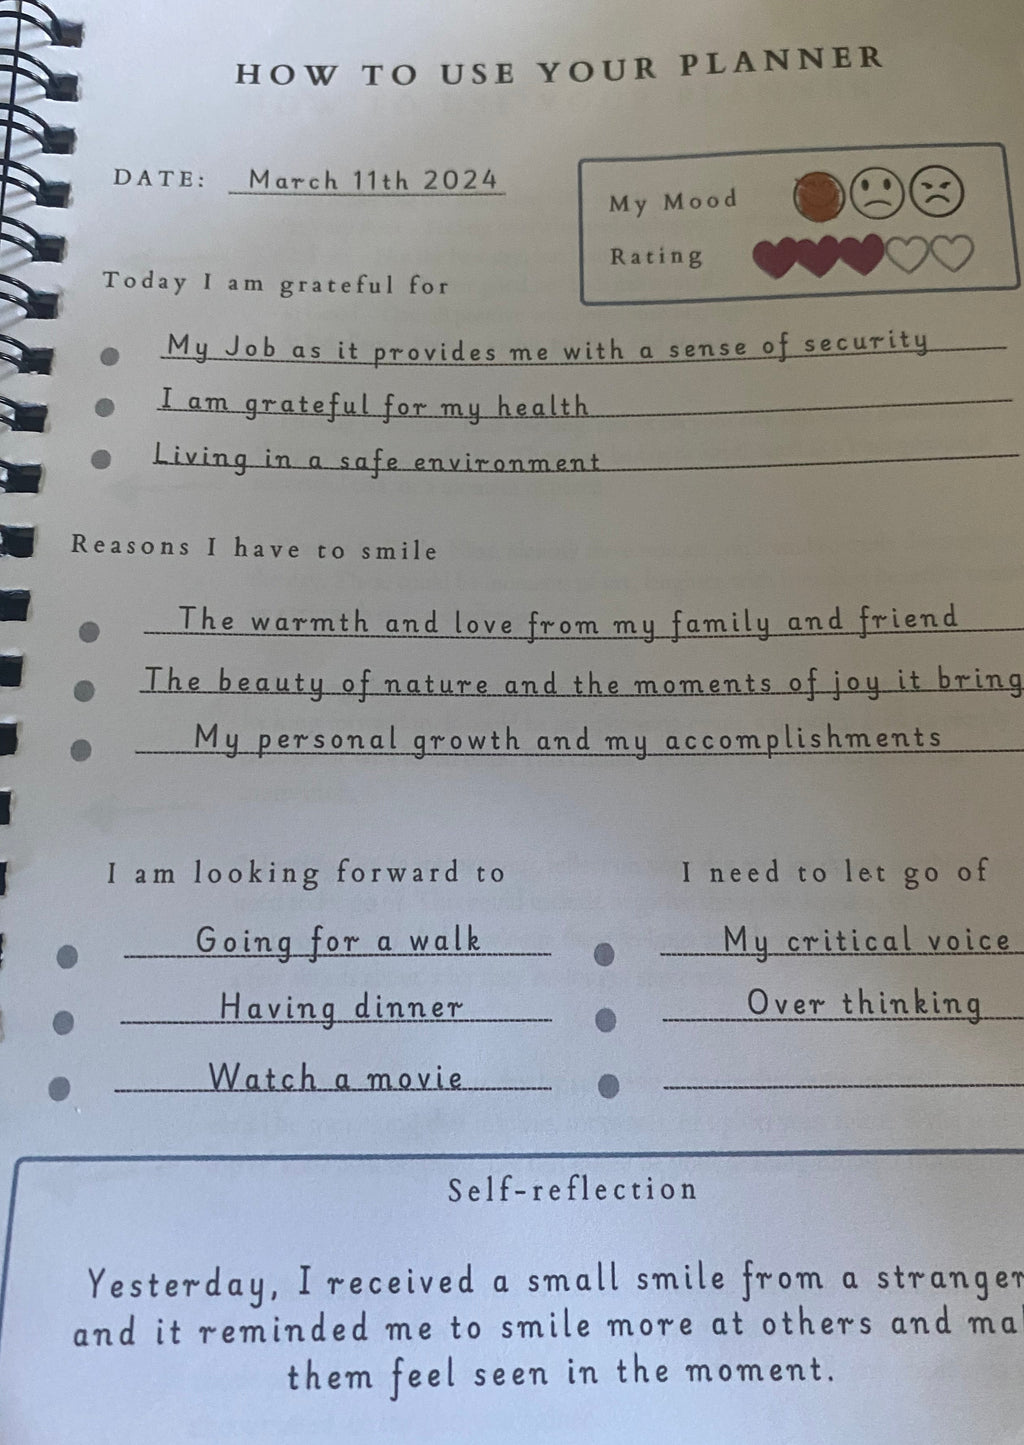 HOW TO USE YOUR PLANNER
DATE: March 11th 2024
My Mood
Rating
Today I am grateful for
My Job as it provides me with a sense of security
I am grateful for my health
Living in a safe environment
Reasons I have to smile
The warmth and love from my family and friend
The beauty of nature and the moments of joy it bring
My personal growth and my accomplishments
I am looking forward to
Going for a walk
Having dinner
Watch a movie
I need to let go of
My critical voice
Over thinking
Self-reflection
Yesterday, I received a small smile from a stranger
and it reminded me to smile more at others and ma
them feel seen in the moment.